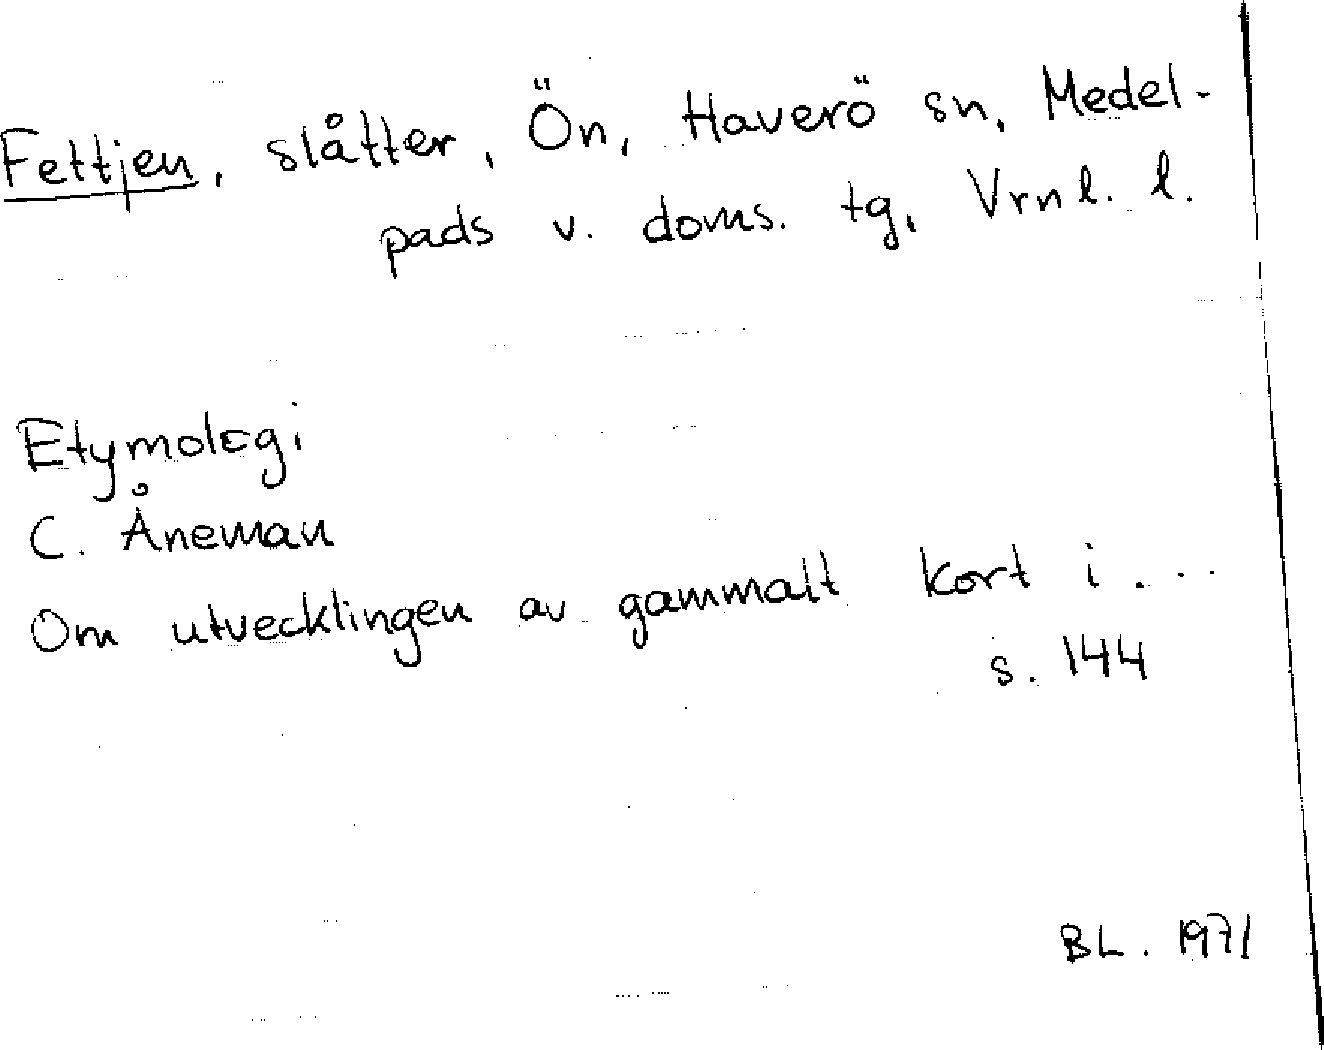 Fettjen, slåtter, Ön, Haverö sn, Medel-
pads v. doms. tg, Vrnl. l.
Etymologi
C. Åneman
Om utvecklingen av gammalt kort i...
s. 144
BL. 1971